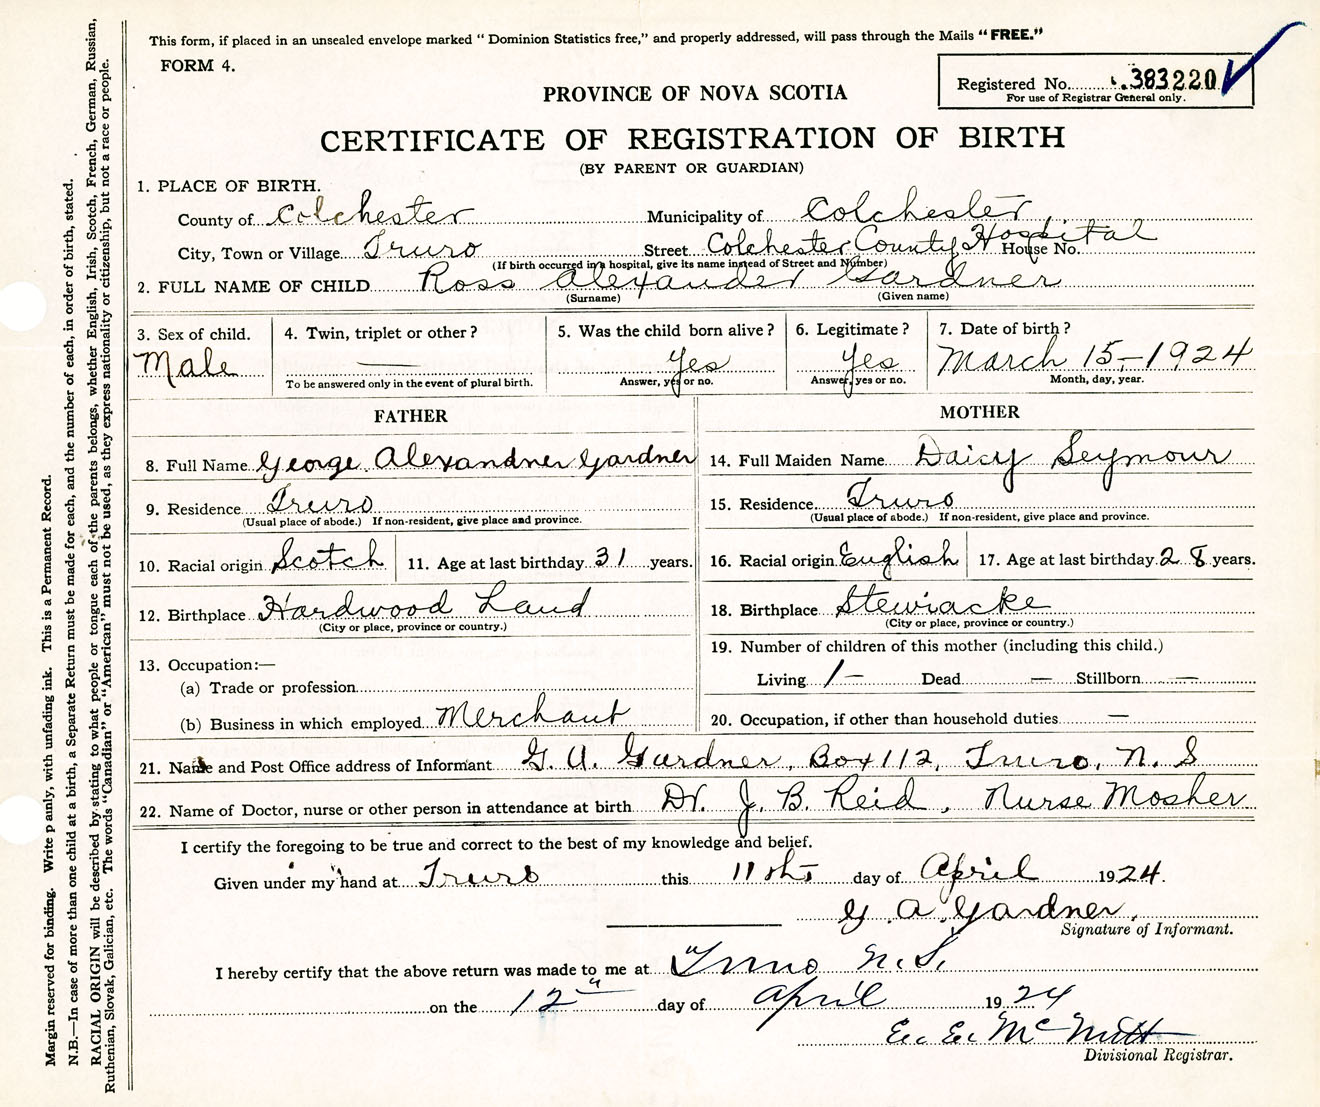 This form, if placed in an unsealed envelope marked " Dominion Statistics free," and properly addressed, will pass through the Mails "FREE."
FORM 4.
Registered No. 383220
For use of Registrar General only.
PROVINCE OF NOVA SCOTIA
CERTIFICATE OF REGISTRATION OF BIRTH
(BY PARENT OR GUARDIAN)
1. PLACE OF BIRTH.
County of Colchester Municipality of Colchester
City, Town or Village Truro Street Colchester County Hospital House No.
(If birth occurred in a hospital, give its name instead of Street and Number)
2. FULL NAME OF CHILD Ross Alexander Gardner
(Surname) (Given name)
3. Sex of child. 4. Twin, triplet or other? 5. Was the child born alive? 6. Legitimate? 7. Date of birth?
Male — Yes Yes March 15,-1924
To be answered only in the event of plural birth. Answer, yes or no. Answer, yes or no. Month, day, year.
FATHER MOTHER
8. Full Name George Alexandner Gardner 14. Full Maiden Name Daicy Seymour
9. Residence Truro 15. Residence Truro
(Usual place of abode.) If non-resident, give place and province. (Usual place of abode.) If non-resident, give place and province.
10. Racial origin Scotch 11. Age at last birthday 31 years. 16. Racial origin English 17. Age at last birthday 28 years.
12. Birthplace Hardwood Land 18. Birthplace Stewiacke
(City or place, province or country.) (City or place, province or country.)
13. Occupation:— 19. Number of children of this mother (including this child.)
(a) Trade or profession Living 1 — Dead — Stillborn —
(b) Business in which employed Merchant 20. Occupation, if other than household duties —
21. Name and Post Office address of Informant G. A. Gardner, Box 112, Truro, N. S
22. Name of Doctor, nurse or other person in attendance at birth Dr. J. B. Reid, Nurse Mosher
I certify the foregoing to be true and correct to the best of my knowledge and belief.
Given under my hand at Truro this 11 day of April 1924.
G. A. Gardner.
Signature of Informant.
I hereby certify that the above return was made to me at Truro N.S.
on the 12" day of April 1924
E. E. McNutt
Divisional Registrar.
Margin reserved for binding. Write p anly, with unfading ink. This is a Permanent Record.
N.B.—In case of more than one child at a birth, a Separate Return must be made for each, and the number of each, in order of birth, stated.
RACIAL ORIGIN will be described by stating to what people or tongue each of the parents belongs, whether English, Irish, Scotch, French, German, Russian,
Ruthenian, Slovak, Galician, etc. The words "Canadian" or "American" must not be used, as they express nationality or citizenship, but not a race or people.